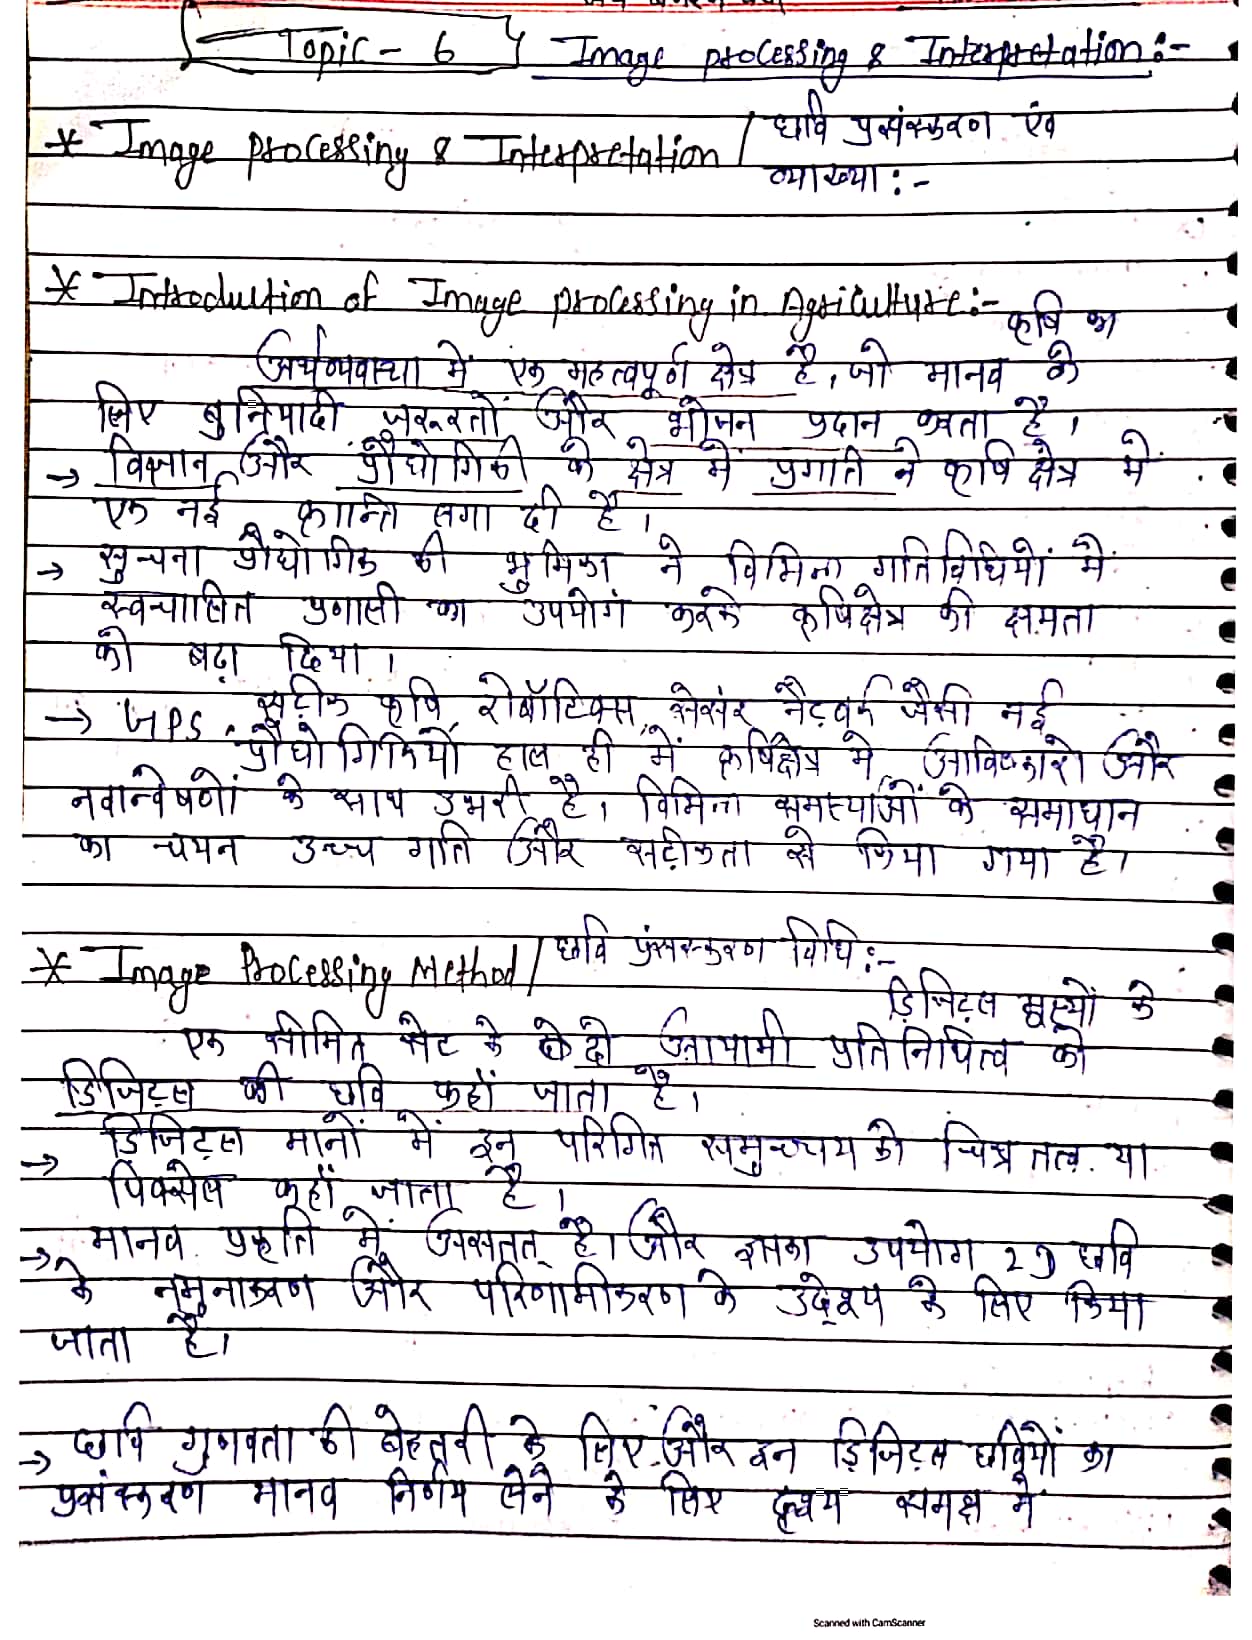 Topic - 6 Image processing & Interpretation :-
* Image processing & Interpretation / छवि प्रसंस्करण एंव
व्याख्या :-
* Introduction of Image processing in Agriculture :-
कृषि का
अर्थव्यवस्था में एक महत्वपूर्ण क्षेत्र है, जो मानव के
लिए बुनियादी जरूरतों और भोजन प्रदान करता है।
→ विज्ञान और प्रौद्योगिकी के क्षेत्र में प्रगति ने कृषि क्षेत्र में
एक नई क्रान्ति लगा दी है।
→ सुचना प्रौद्योगिक की भुमिका ने विभिन्न गतिविधियों में
स्वचालित प्रणाली का उपयोग करके कृषिक्षेत्र की क्षमता
को बढ़ा दिया।
→ GPS, सटीक कृषि रोबॉटिक्स, सेसंर नैटवर्क जैसी नई
प्रौद्योगिकियों हाल ही में कृषिक्षेत्र में आविष्कारों और
नवान्वेषणों के साथ उभरी है। विभिन्न समस्याओं के समाधान
का चयन उच्च गति और सटीकता से किया गया है।
* Image Processing Method / छवि प्रंसस्करण विधि :-
डिजिटल मूल्यों के
एक सीमित सेट के दो आयामी प्रतिनिधित्व को
डिजिटल की छवि कहाँ जाता है।
→ डिजिटल मानों में इन परिगित समुच्चय को चित्र तत्व या
पिक्सेल कहाँ जाता है।
→ मानव प्रकृति में असतत् है। और इसका उपयोग 2D छवि
के नमुनाकरण और परिणामीकरण के उद्देश्य के लिए किया
जाता है।
→ छवि गुणवता की बेहतरी के लिए और इन डिजिटल छवियों का
प्रसंस्करण मानव निर्णय लेने के लिए दृश्य समक्ष में
Scanned with CamScanner